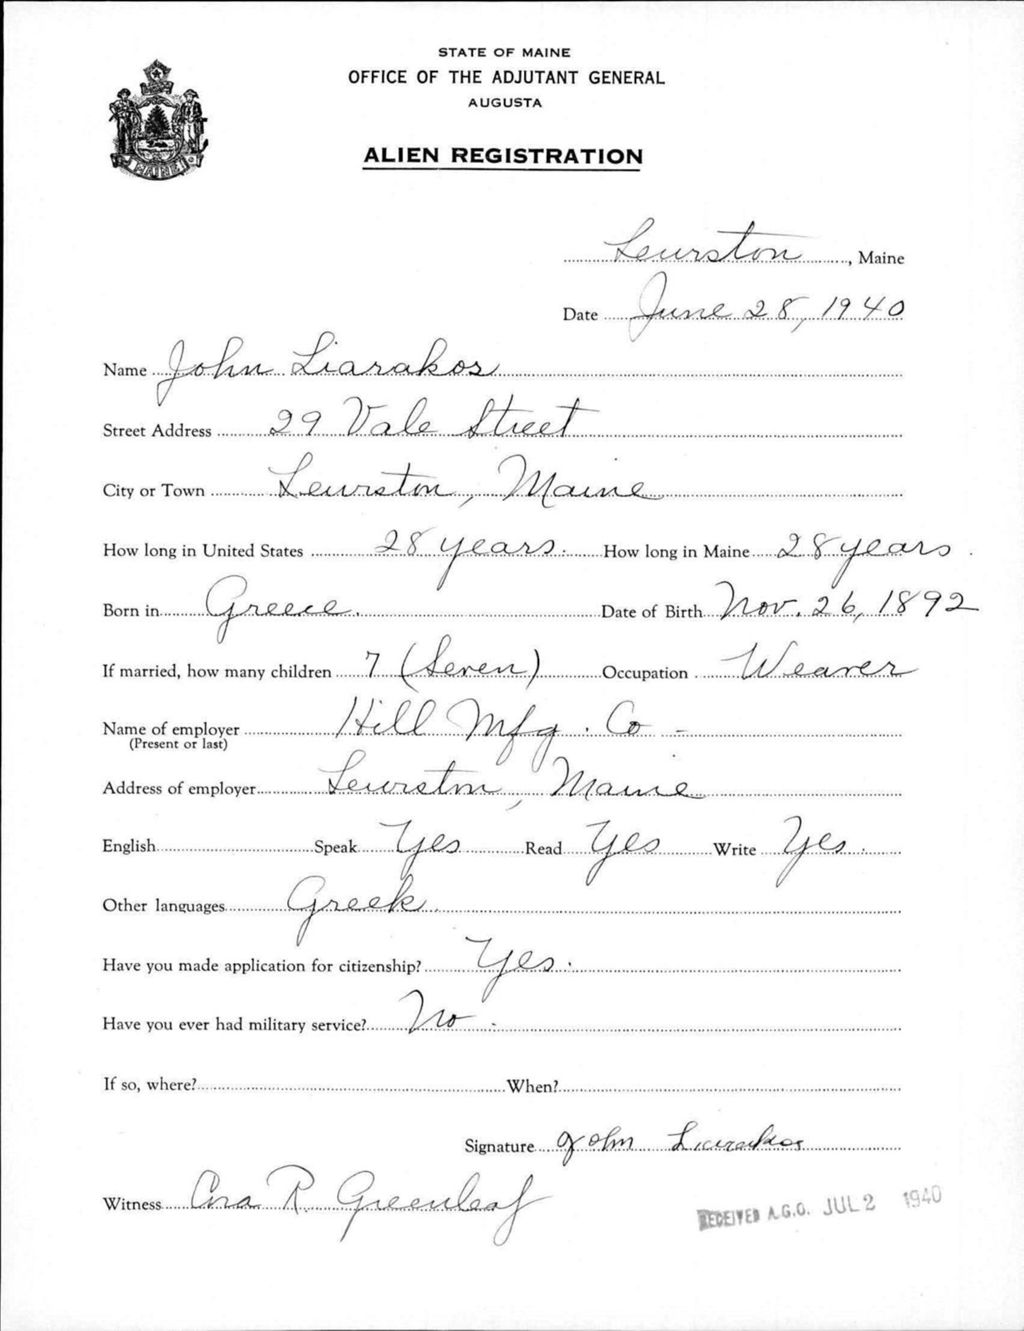 STATE OF MAINE
OFFICE OF THE ADJUTANT GENERAL
AUGUSTA
ALIEN REGISTRATION
MAINE
Lewiston, Maine
Date June 28, 1940
Name John Liarakos
Street Address 29 Vale Street
City or Town Lewiston, Maine
How long in United States 28 years. How long in Maine 28 years.
Born in Greece. Date of Birth Nov. 26, 1892
If married, how many children 7 (Seven) Occupation Weaver
Name of employer Hill Mfg. Co -
(Present or last)
Address of employer Lewiston, Maine
English Speak Yes Read Yes Write Yes.
Other languages Greek.
Have you made application for citizenship? Yes.
Have you ever had military service? No.
If so, where? When?
Signature John Liarakos
Witness Cora R Greenleaf
RECEIVED A.G.O. JUL 2 1940